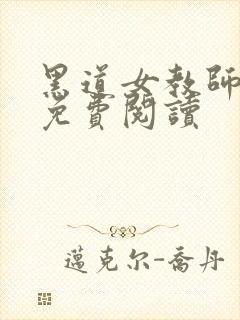 黑道女教師
免費閱讀
邁克尔-喬丹